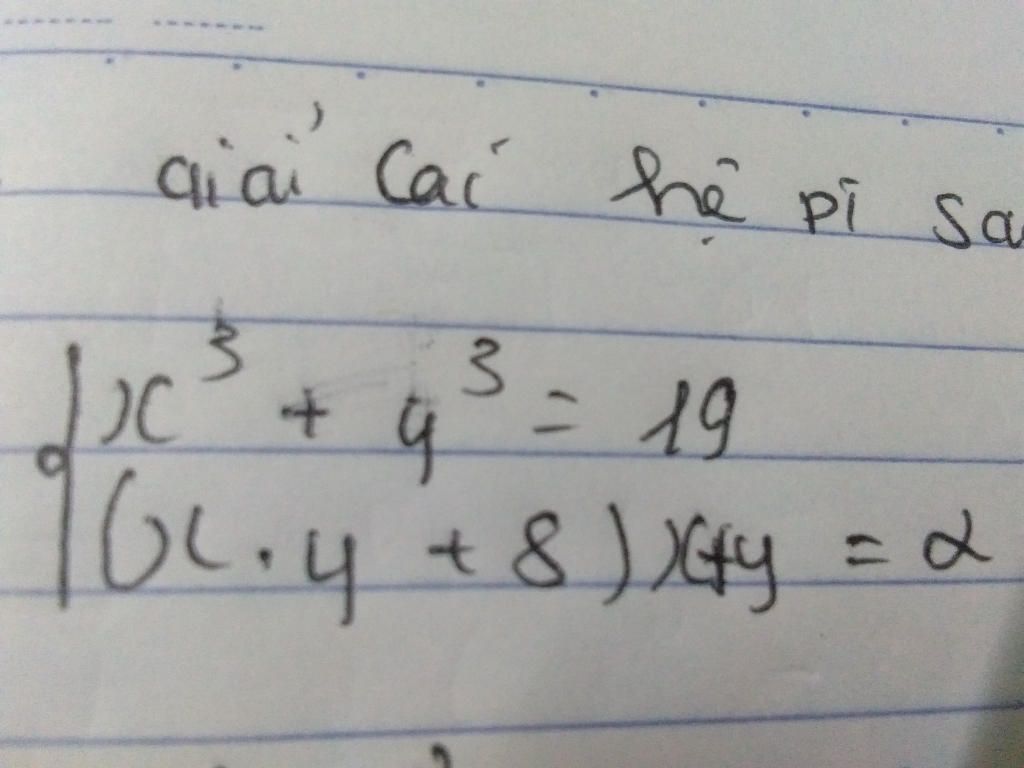 giải các hệ pt sa
x³ + y³ = 19
(x.y + 8) x+y = 2